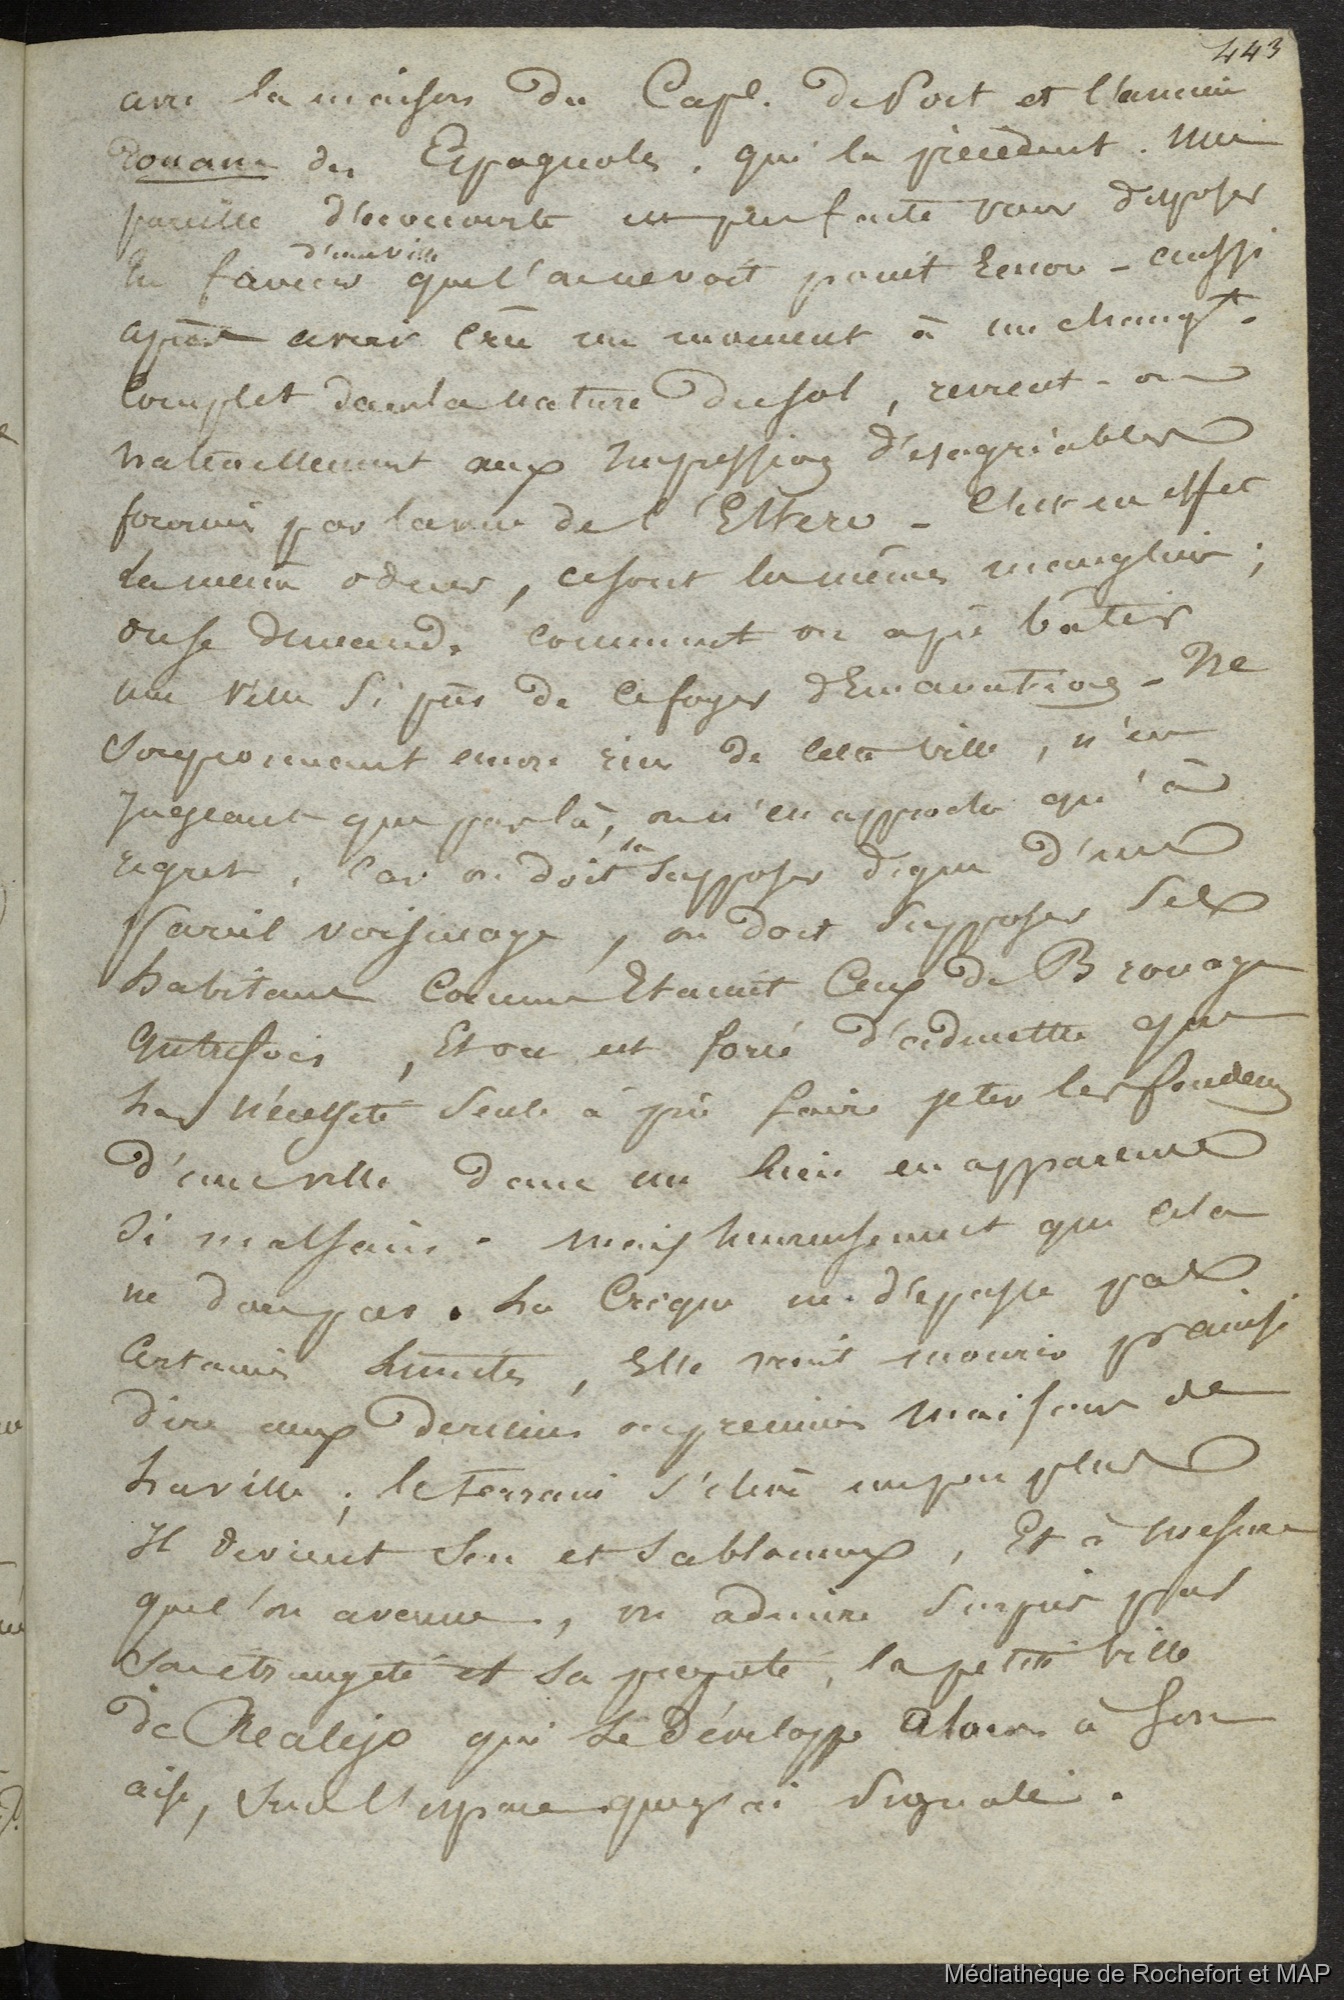 443
avec la maison du Cap.e de Port et l'ancien
Douane des Espagnols, qui la précèdent. Une
pareille découverte est peu faite pour disposer
En faveur d'une ville que l'on ne voit point Encor - aussi
après avoir crû un moment à un changt.
Complet dans la nature du sol, revient-on
naturellement aux Impressions désagréables
fournies par la vue de l'Estero - C'est en effet
la même odeur, ce sont les mêmes mangliers ;
on se demande comment on a pû bâtir
une ville si près de ce foyer d'Emanations - Ne
soupçonnant encore rien de cette ville, n'en
Jugeant que par là, on n'en approche qu'à
regret, Car on doit la supposer digne d'un
Pareil voisinage, on doit supposer Ses
habitans Comme Etaient Ceux de Brouage
Autrefois, Et on est forcé d'admettre que
La Nécessité Seule a pû faire jeter les fondemens
d'une ville dans un lieu en apparence
Si malsain. Mais heureusement que cela
ne dure pas. La Crique ne dépasse pas
Certaines limites, Elle vient mourir pr ainsi
dire aux dernières ou premières Maisons de
La ville ; le terrain s'élève un peu plus
Il devient sec et sablonneux, Et à mesure
que l'on avance, on admire
son étrangeté et sa propreté, la petite ville
de Realejo qui se développe alors à son
aise, sur l'espace que j'ai Signalé.
Médiathèque de Rochefort et MAP